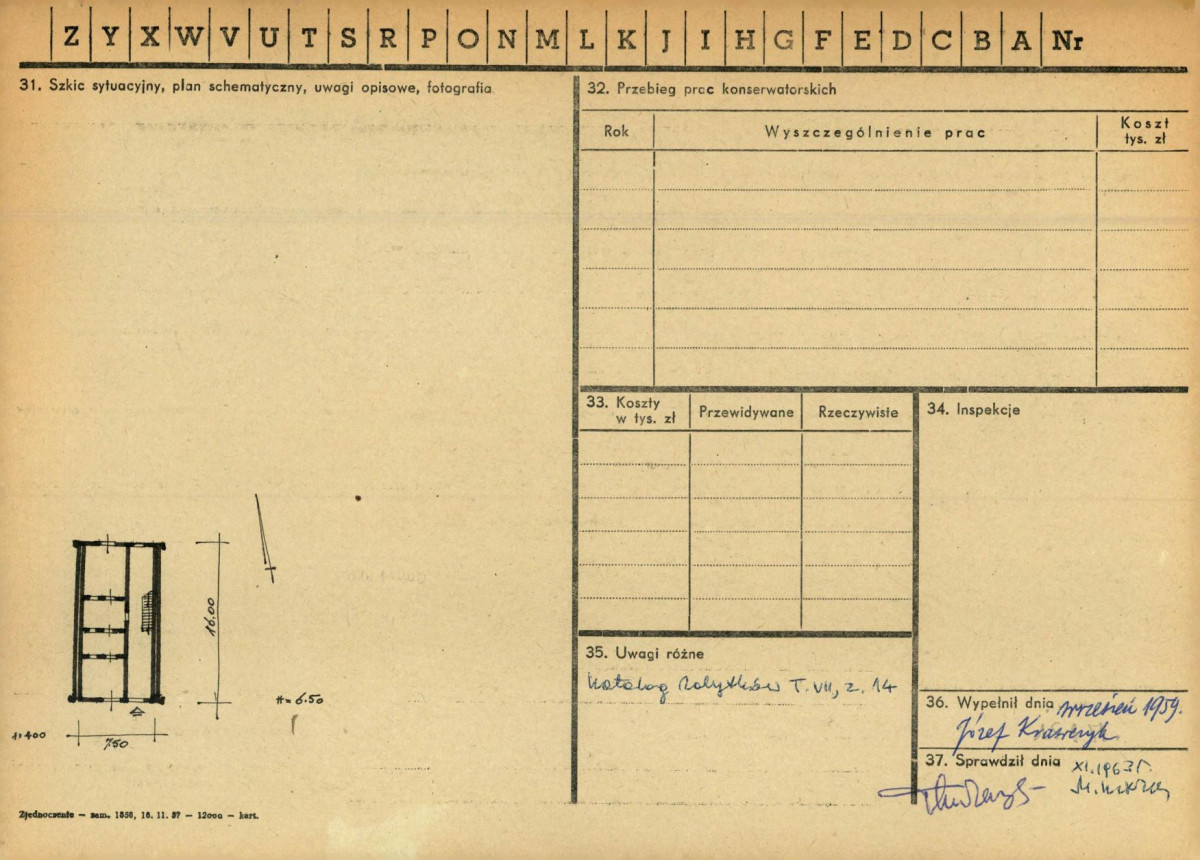 Z Y X W V U T S R P O N M L K J I H G F E D C B A Nr
31. Szkic sytuacyjny, plan schematyczny, uwagi opisowe, fotografia
16.00
H = 6.50
1:400
7.50
Zjednoczenie — zam. 1856, 16. 11. 57 — 12000 — kart.
32. Przebieg prac konserwatorskich
Rok Wyszczególnienie prac Koszt
tys. zł
33. Koszty
w tys. zł Przewidywane Rzeczywiste
34. Inspekcje
35. Uwagi różne
Katalog Zabytków T. VII, z. 14
36. Wypełnił dnia wrzesień 1959.
Józef Krawczyk
37. Sprawdził dnia XI.1963 r.